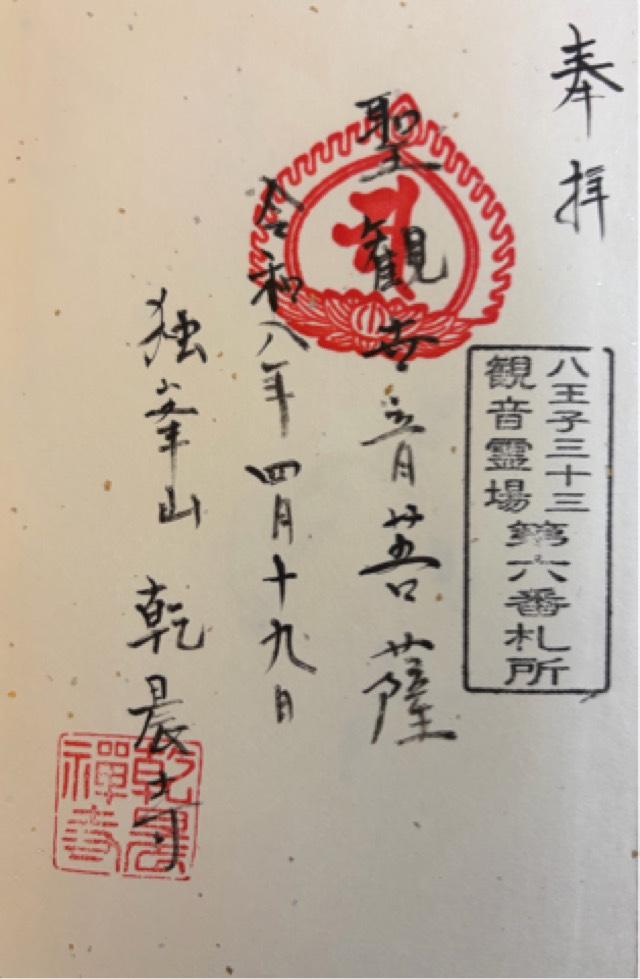 奉拝
八王子三十三
観音霊場
第六番札所
聖観世音菩薩
令和八年四月十九日
独峯山 乾晨寺
乾晨
禪寺